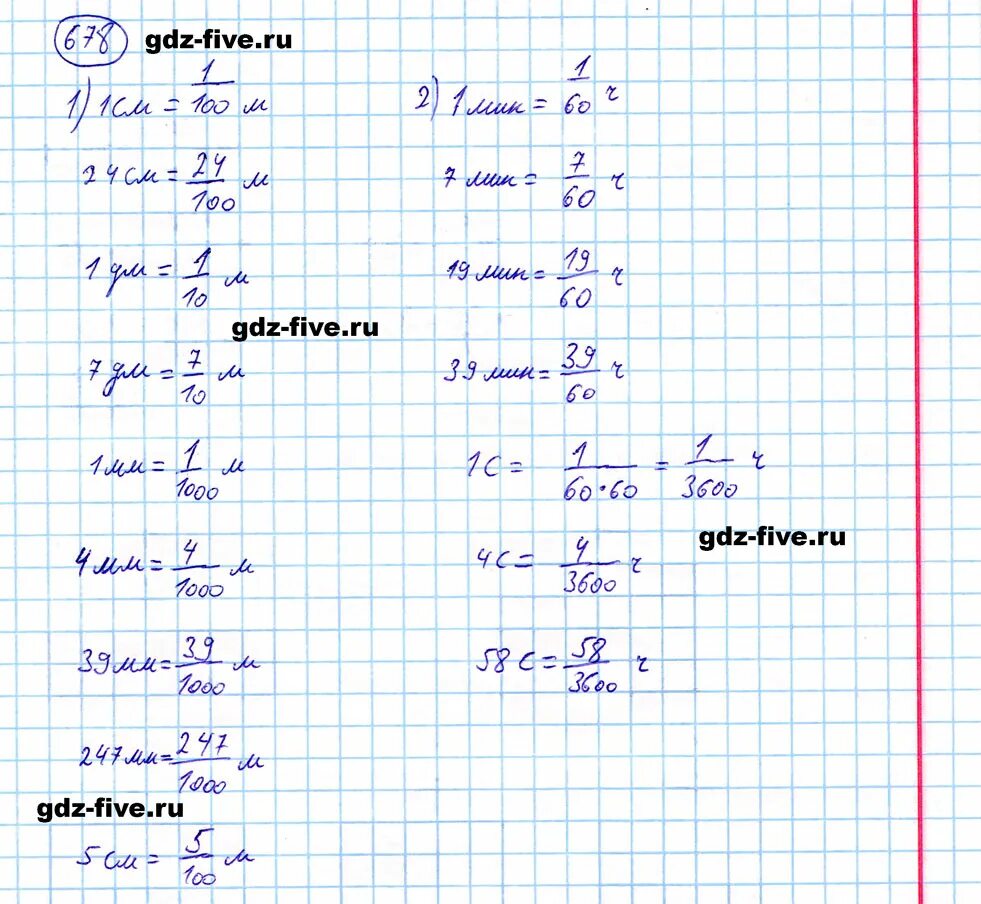 678 gdz-five.ru
1) 1 см = 1/100 м
24 см = 24/100 м
1 дм = 1/10 м
gdz-five.ru
7 дм = 7/10 м
1 мм = 1/1000 м
4 мм = 4/1000 м
39 мм = 39/1000 м
247 мм = 247/1000 м
gdz-five.ru
5 см = 5/100 м
2) 1 мин = 1/60 ч
7 мин = 7/60 ч
19 мин = 19/60 ч
39 мин = 39/60 ч
1 с = 1/60·60 = 1/3600 ч
gdz-five.ru
4 с = 4/3600 ч
58 с = 58/3600 ч